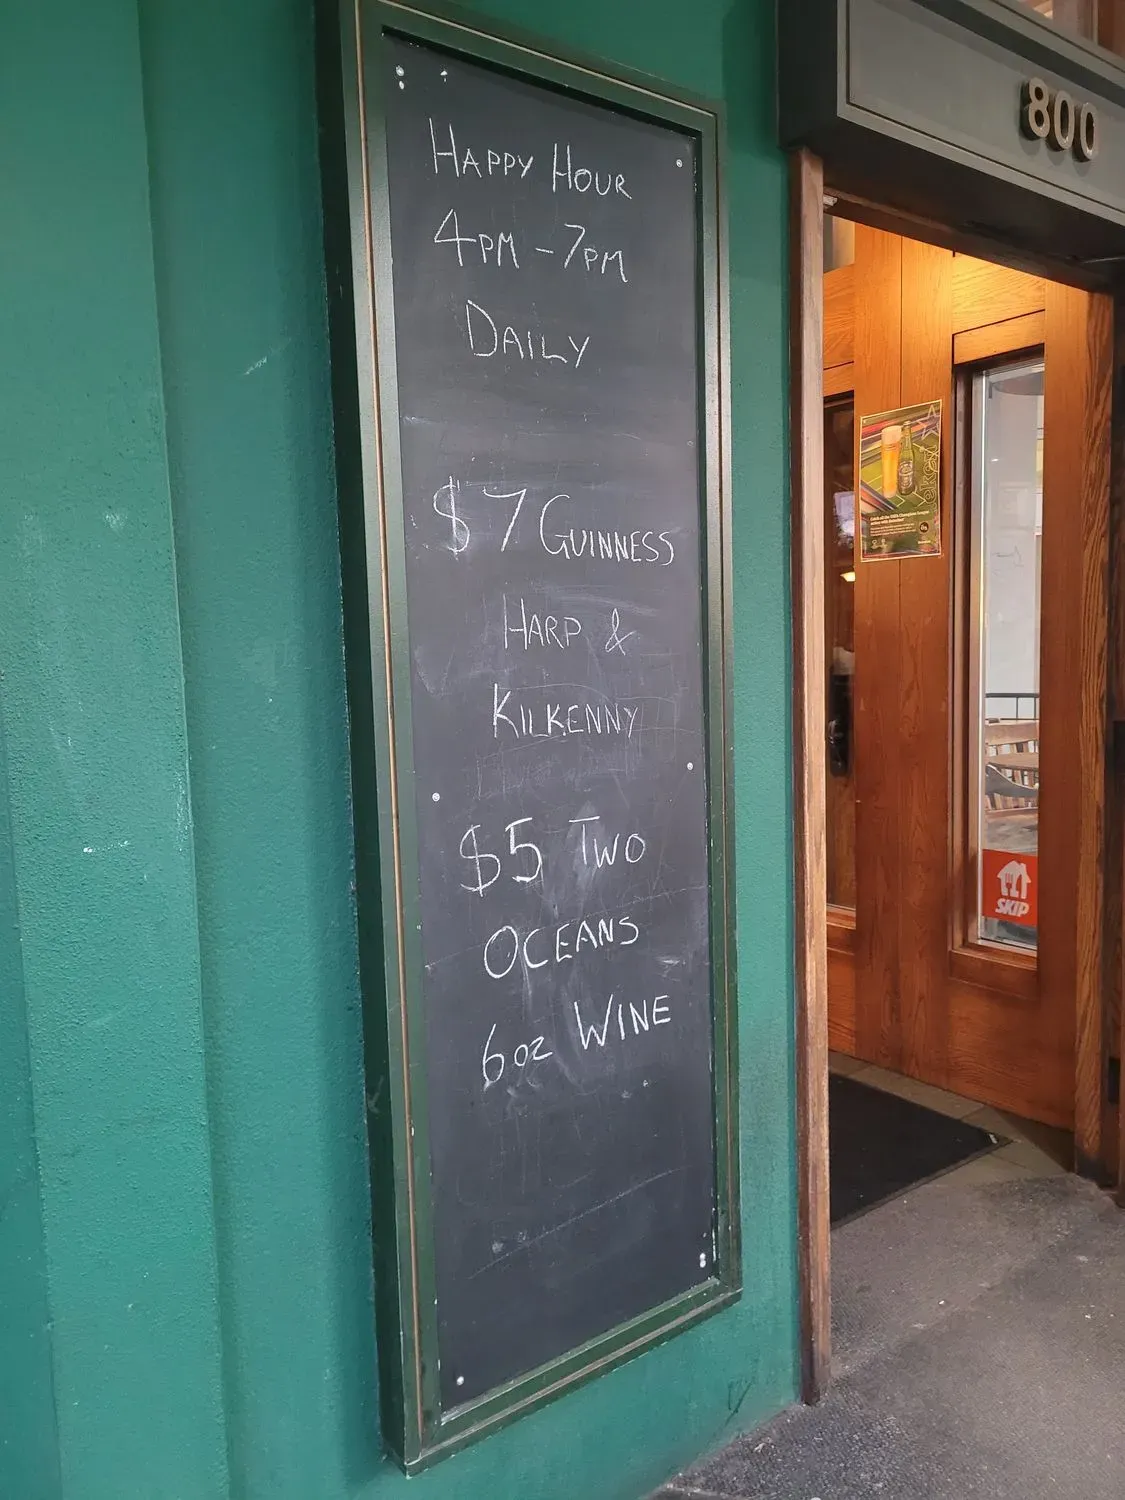 Happy Hour
4pm - 7pm
Daily
$7 Guinness
Harp &
Kilkenny
$5 Two
Oceans
6oz Wine
800
SKIP